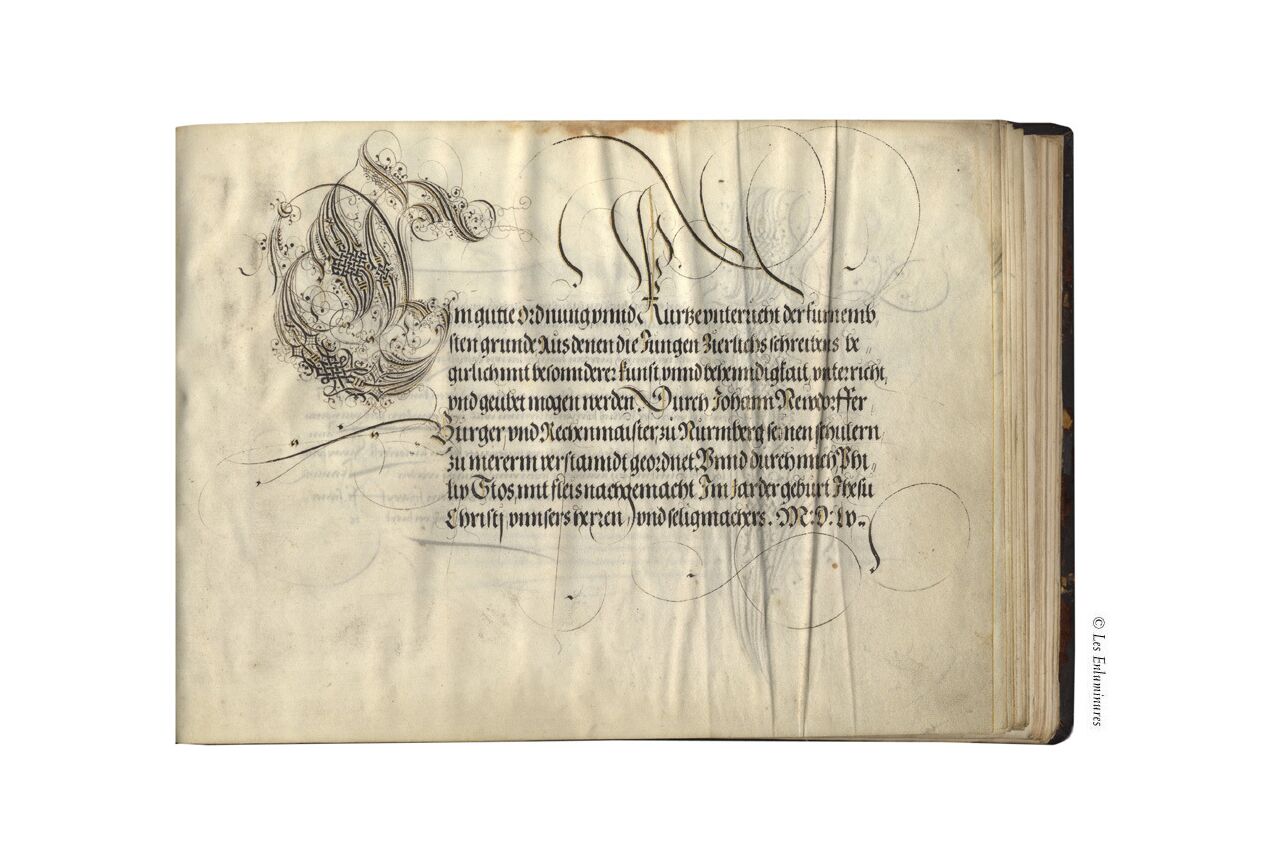 Ein gutte Ordnung vnnd Kurtze vnterricht der furnemb„
sten grunde Aus denen die Jungen Zierlichs schreibens be„
girlich mit besonnderer kunst vnnd behenndigkait, vnterricht,
vnd geubet mogen werden. Durch Johann Newdorffer
Burger, vnd Rechenmaister, zu Nurmberg seinen schulern
zu mererm verstanndt geordnet. Vnnd durch mich Phi„
lip Stos, mit fleis nachgemacht Im Jar der geburt Jhesu
Christj vnnsers herren, vnd seligmachers. M: D: Lv.
© Les Enluminures